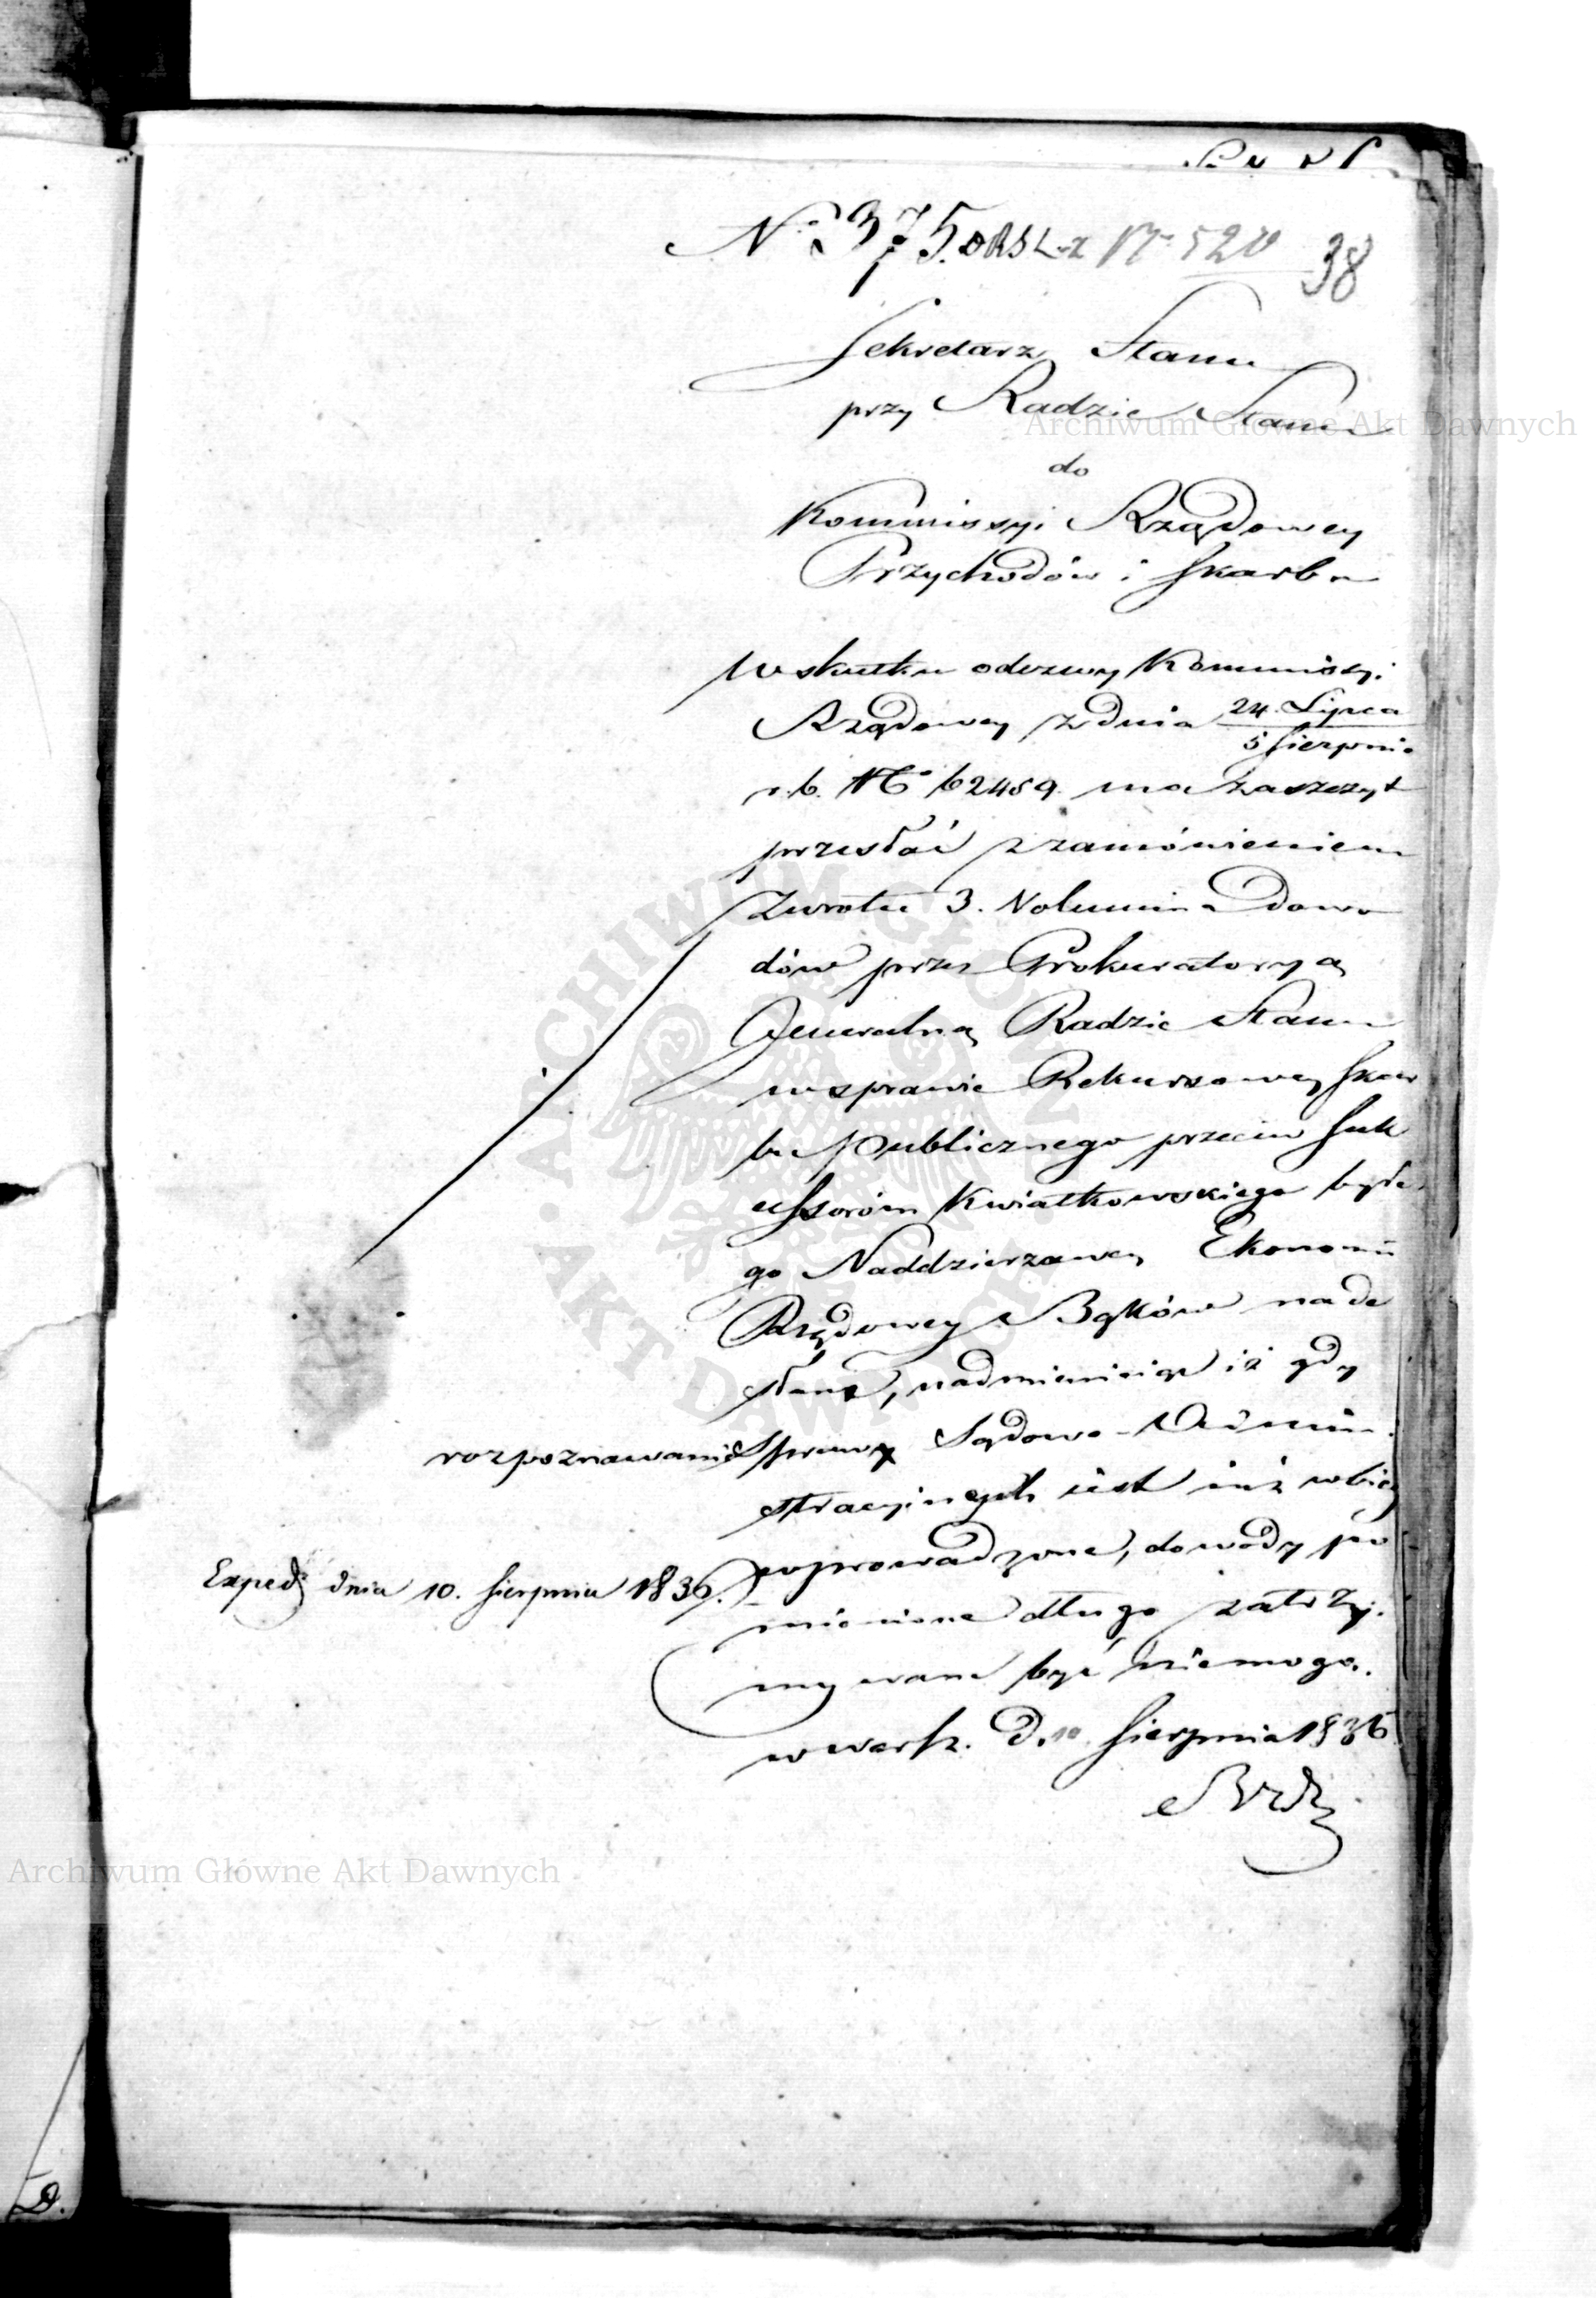 No 375. DRSL z N 520 38
Sekretarz Stanu
przy Radzie Stanu
do
Kommissyi Rządowey
Przychodów i Skarbu
W skutku odezwy Kommissyi
Rządowey z dnia 24. Lipca
5 Sierpnia
r. b. No 62459 ma zaszczyt
przesłać z zamówieniem
zwrotu 3. Volumina dowo
dów przez Prokuratoryą
Jeneralną Radzie Stanu
w sprawie Rekursowey Skar
bu Publicznego przeciw Suk
cessorom Kwiatkowskiego byłe
go Naddzierzawcy Ekonomii
Rządowey Bąków nade
słane, nadmieniaiąc iż gdy
rozpoznawanie spraw Sądowo-Admini
stracyinych iest iuż w bieg
wprowadzone, dowody po
Exped. dnia 10. Sierpnia 1836.
mienione długo zatrzy
mywane być niemogą.
w Warsz. d. 10 Sierpnia 1836
Archiwum Główne Akt Dawnych
ARCHIWUM GŁÓWNE AKT DAWNYCH
Archiwum Główne Akt Dawnych
D.